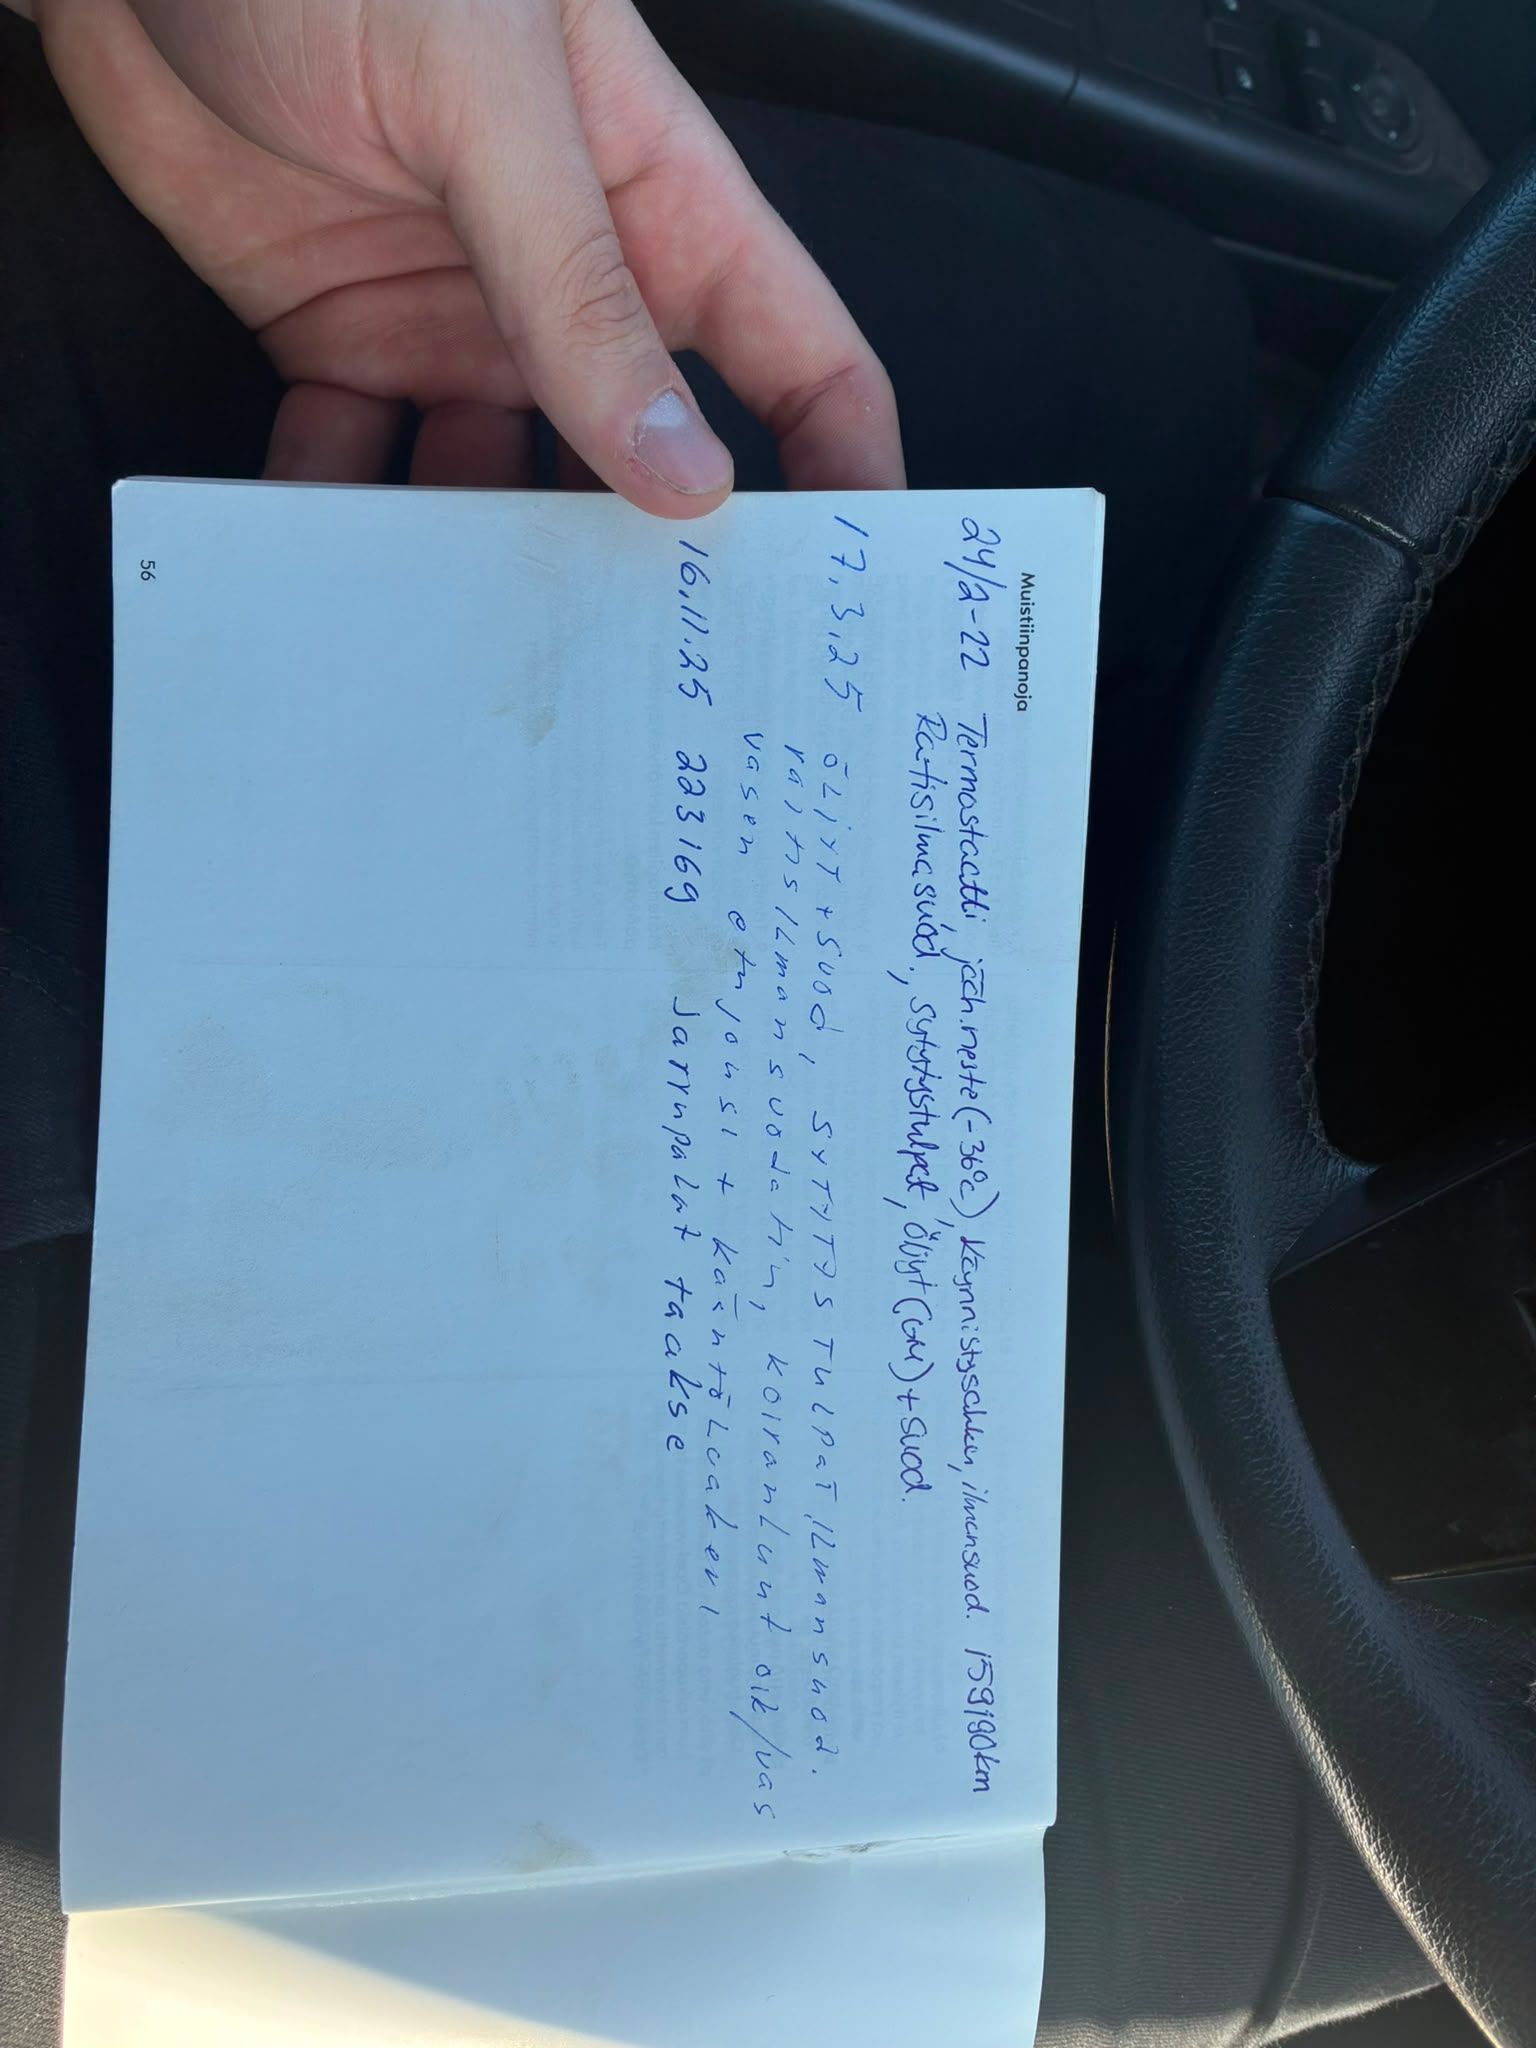 Muistiinpanoja
24/2-22 Termostaatti, jääh.neste (-36°c), Käynnistysakku, ilmansuod. 159190km
Raitisilmasuod., sytytystulpat, Öljyt (GM) + suod.
17.3.25 öljyt + suod, sytytystulpat, ilmansuod.
raitisilmansuodatin, koiranluut oik/vas
vasen etujousi + kääntölaakeri
16.11.25 223169 jarrupalat taakse
56